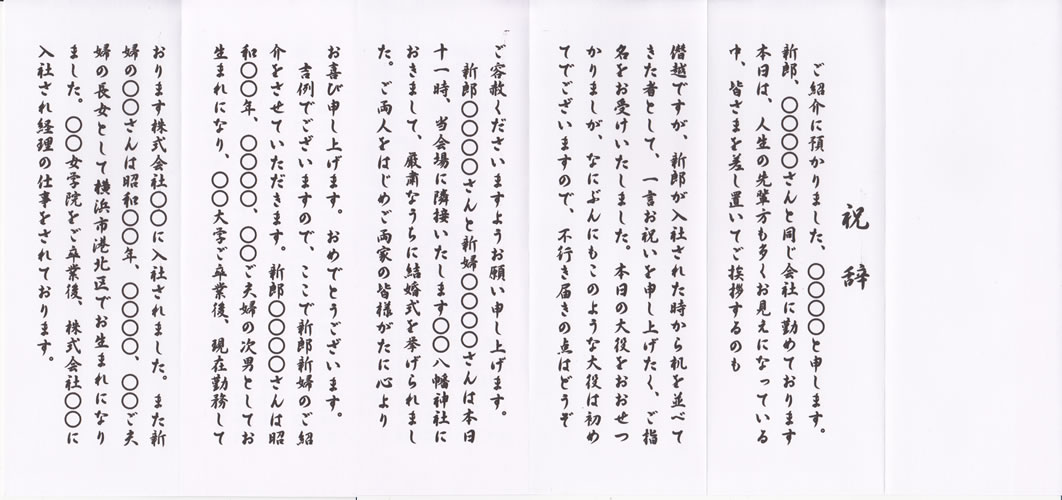 祝辞
ご紹介に預かりました、〇〇〇〇と申します。
新郎、〇〇〇〇さんと同じ会社に勤めております
本日は、人生の先輩方も多くお見えになっている
中、皆さまを差し置いてご挨拶するのも
僭越ですが、新郎が入社された時から机を並べて
きた者として、一言お祝いを申し上げたく、ご指
名をお受けいたしました。本日の大役をおおせつ
かりましが、なにぶんにもこのような大役は初め
てでございますので、不行き届きの点はどうぞ
ご容赦くださいますようお願い申し上げます。
新郎〇〇〇〇さんと新婦〇〇〇〇さんは本日
十一時、当会場に隣接いたします〇〇八幡神社に
おきまして、厳粛なうちに結婚式を挙げられまし
た。ご両人をはじめご両家の皆様がたに心より
お喜び申し上げます。おめでとうございます。
吉例でございますので、ここで新郎新婦のご紹
介をさせていただきます。新郎〇〇〇〇さんは昭
和〇〇年、〇〇〇〇、〇〇ご夫婦の次男としてお
生まれになり、〇〇大学ご卒業後、現在勤務して
おります株式会社〇〇に入社されました。また新
婦の〇〇さんは昭和〇〇年、〇〇〇〇、〇〇ご夫
婦の長女として横浜市港北区でお生まれになり
ました。〇〇女学院をご卒業後、株式会社〇〇に
入社され経理の仕事をされております。